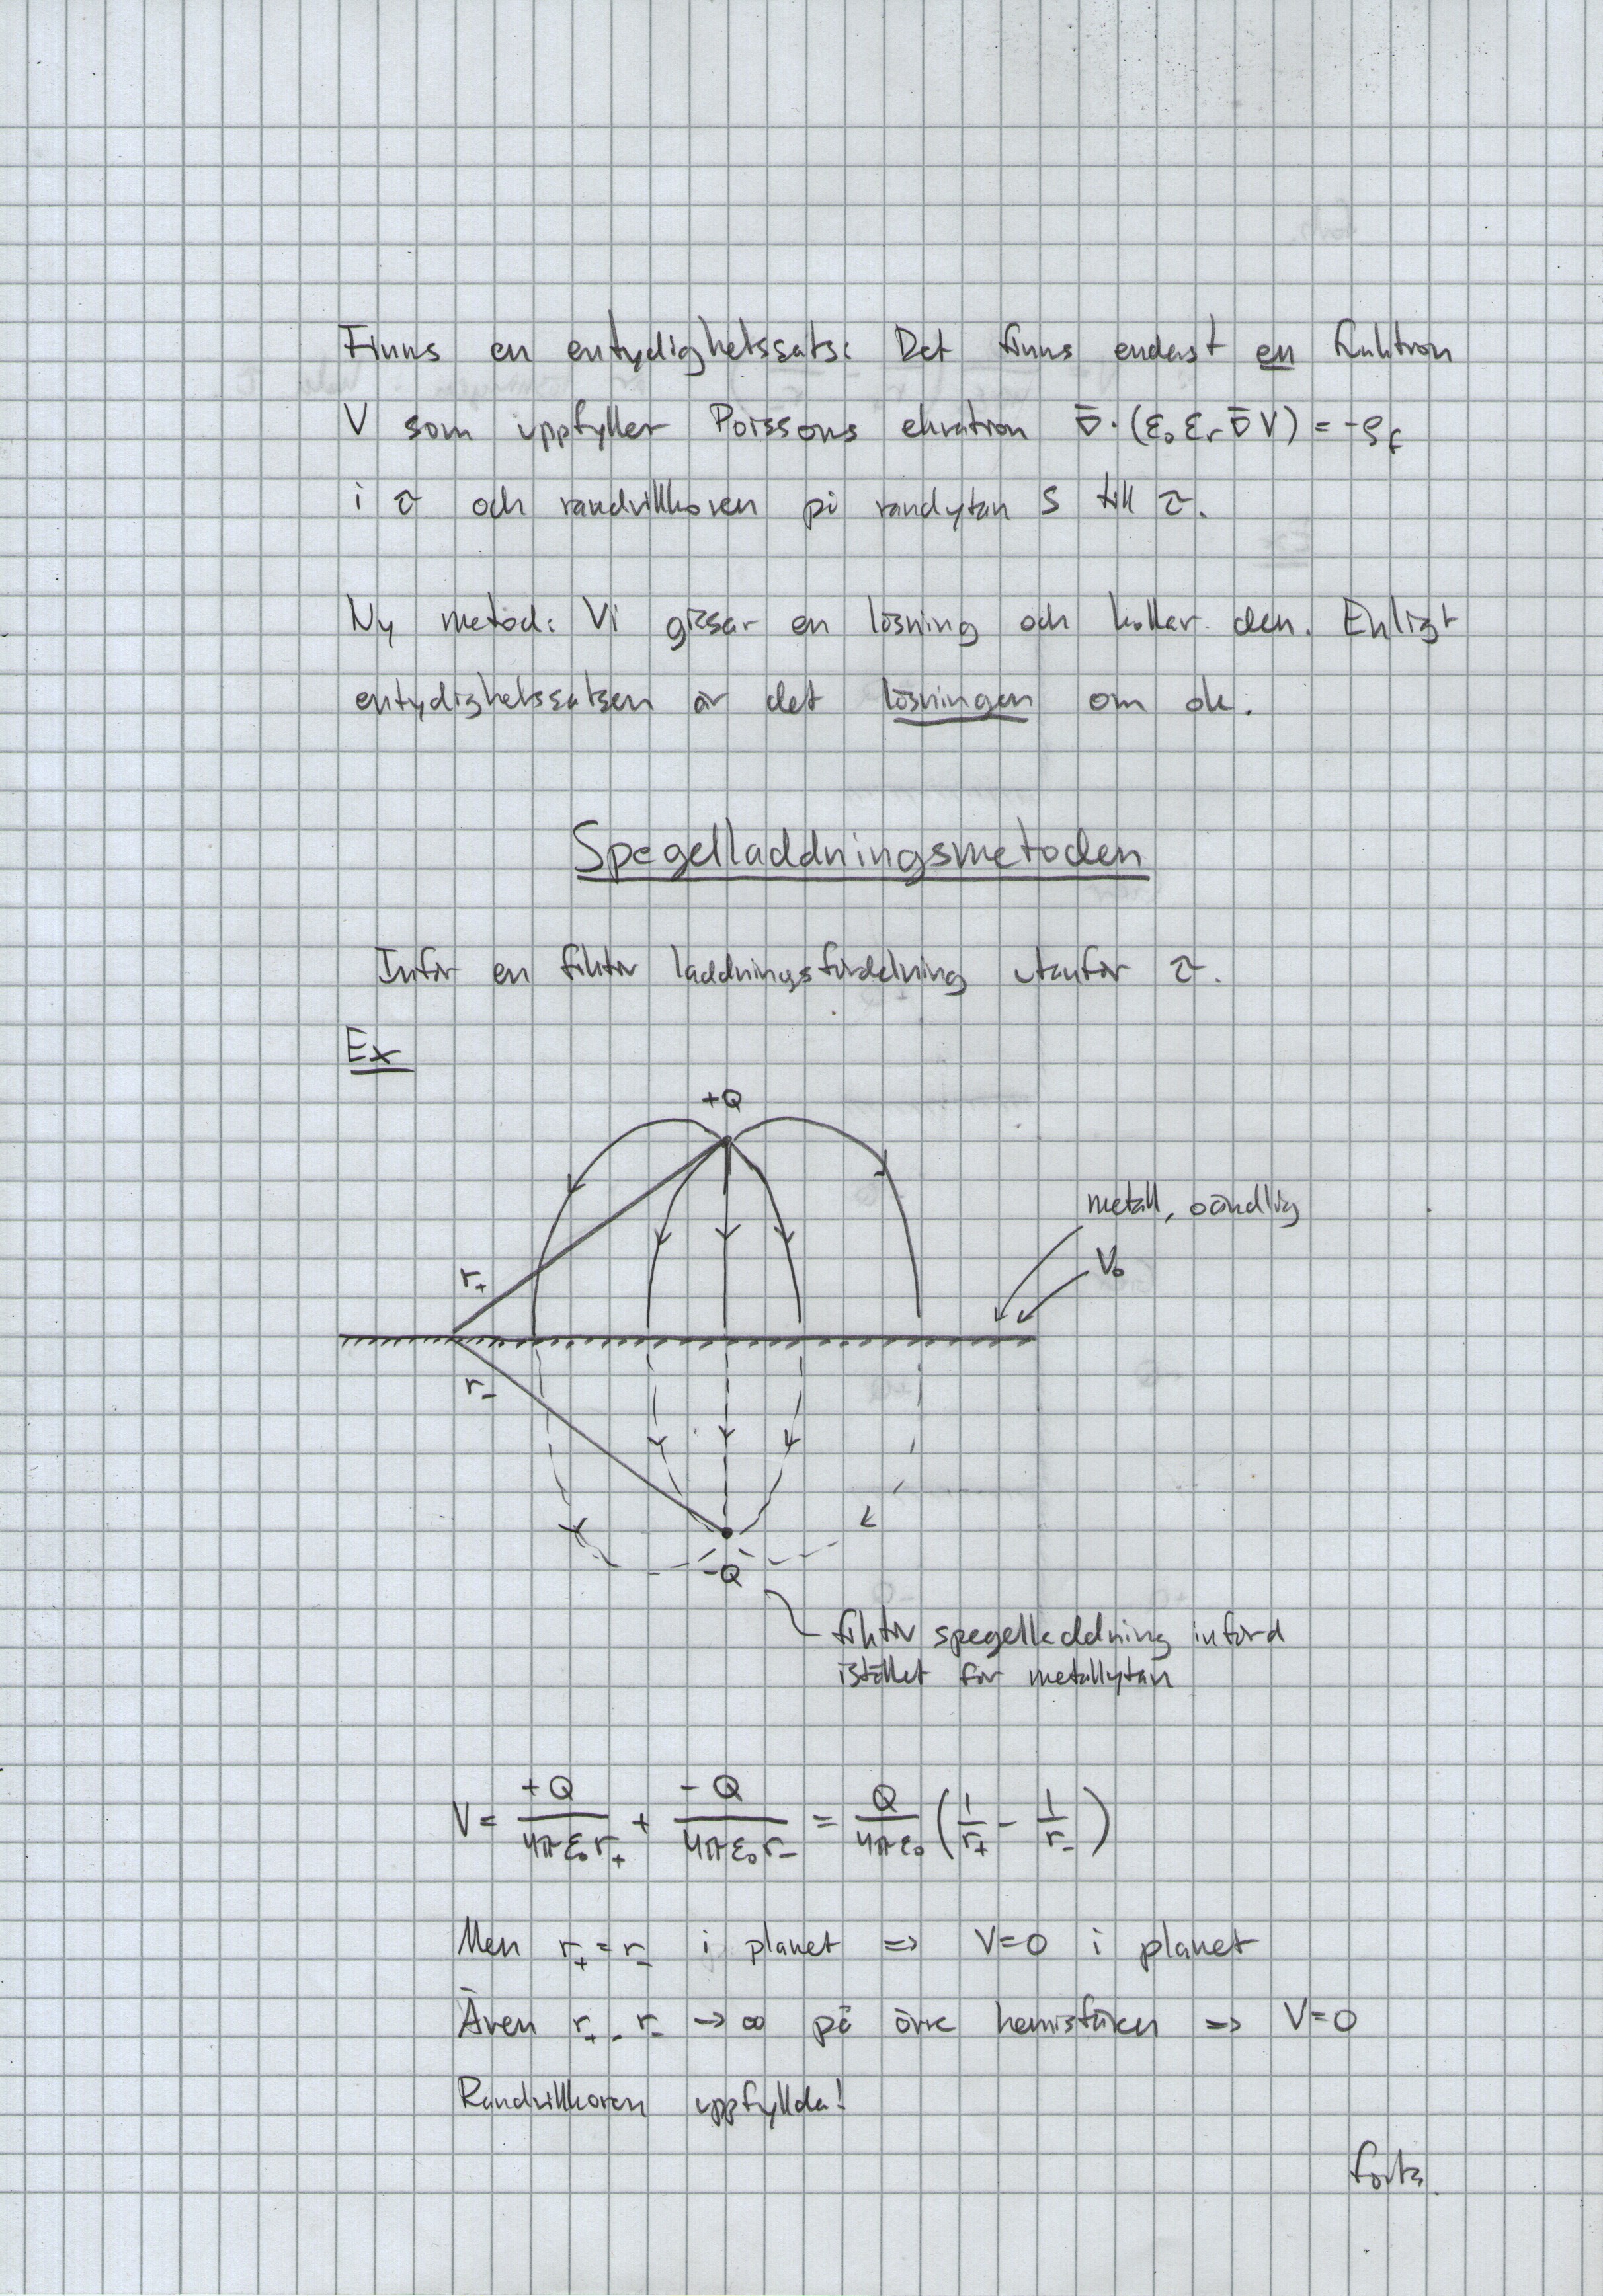 Finns en entydighetssats: Det finns endast en funktion
V som uppfyller Poissons ekvation ∇̄·(ε₀εᵣ∇̄V) = -ρf
i τ och randvillkoren på randytan S till τ.
Ny metod: Vi gissar en lösning och kollar den. Enligt
entydighetssatsen är det lösningen om ok.
Spegelladdningsmetoden
Inför en fiktiv laddningsfördelning utanför τ.
Ex
+Q
metall, oändlig
V₀
r₊
r₋
-Q
fiktiv spegelladdning införd
istället för metallytan
V = +Q/(4πε₀r₊) + -Q/(4πε₀r₋) = Q/(4πε₀) (1/r₊ - 1/r₋)
Men r₊ = r₋ i planet => V=0 i planet
Även r₊, r₋ → ∞ på övre hemisfären => V=0
Randvillkoren uppfyllda!
forts.